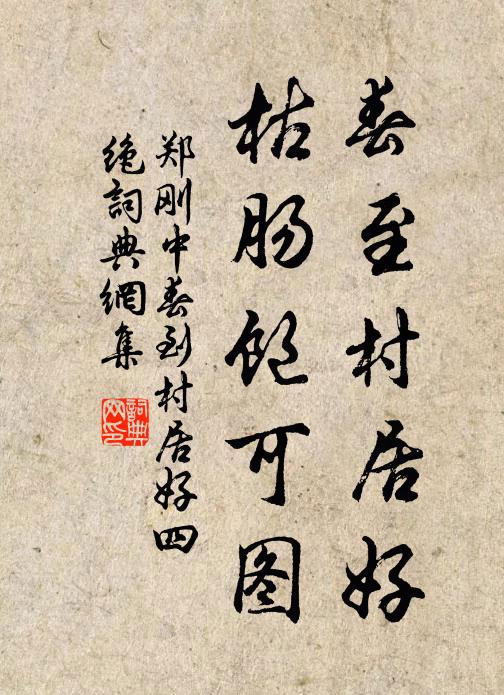 春至村居好
枯肠饱可图
郑刚中春到村居好四
绝詞典網集
詞典网印